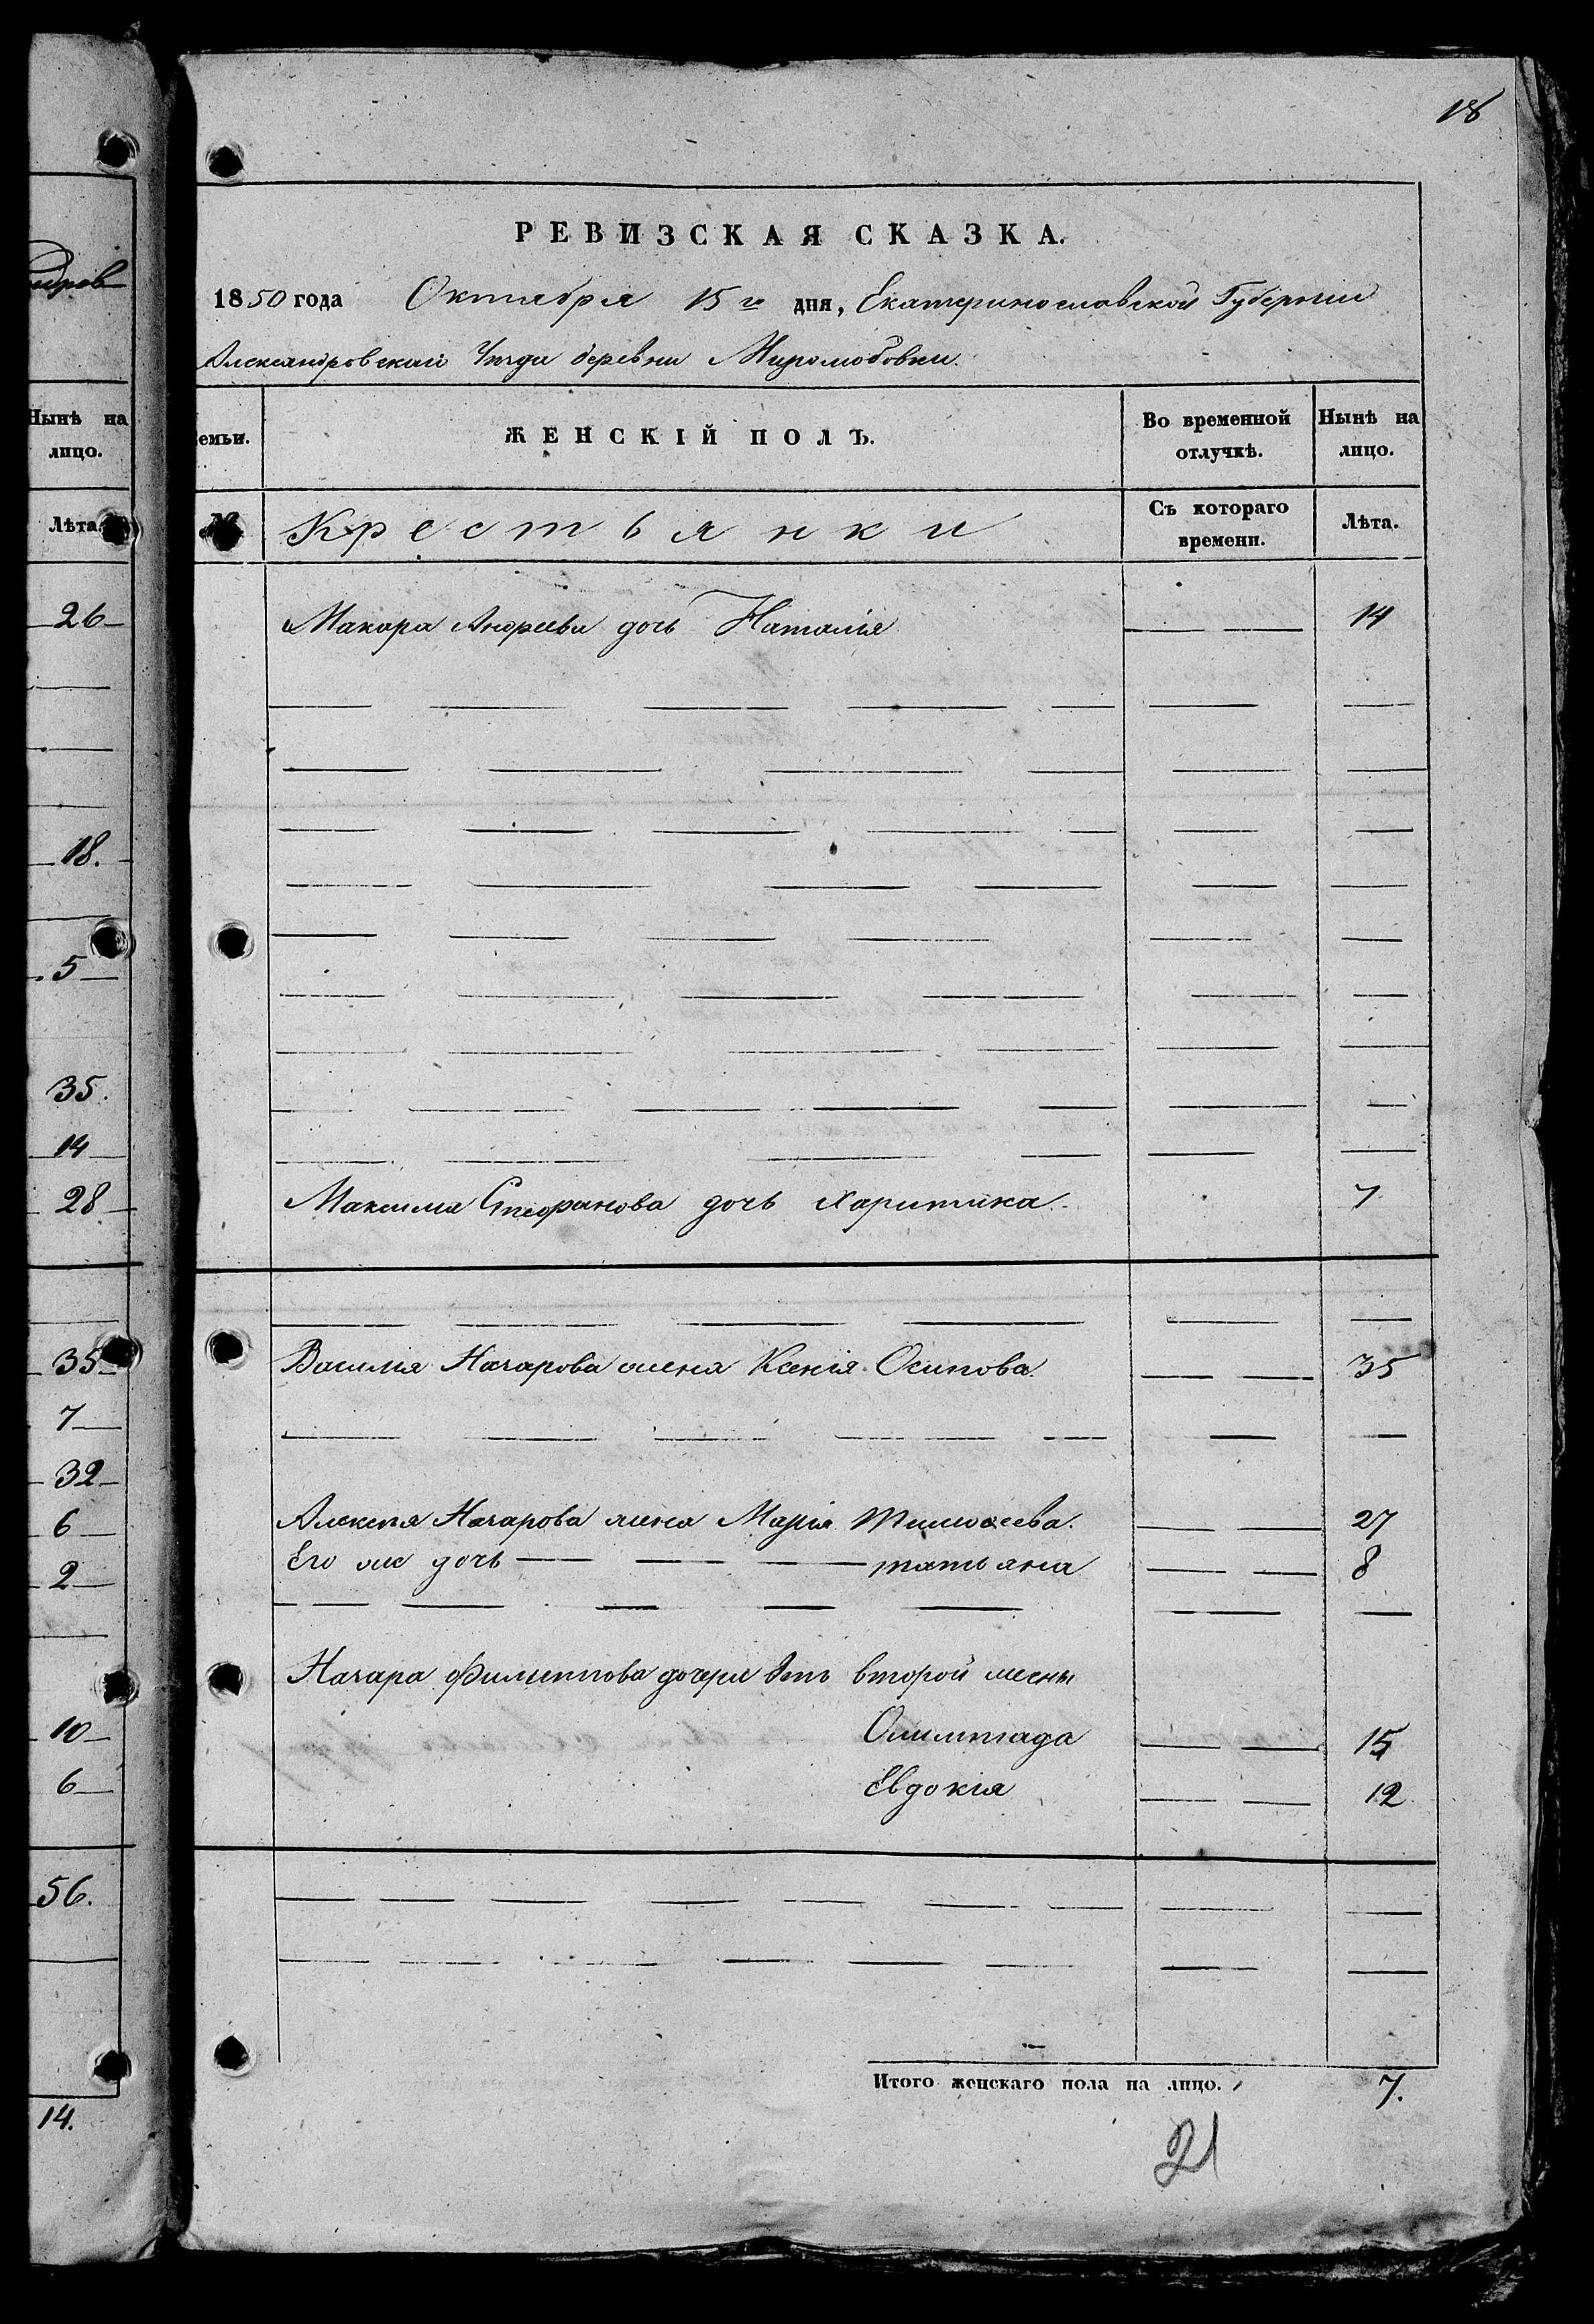 18
РЕВИЗСКАЯ СКАЗКА.
1850 года Октября 15го дня, Екатеринославской Губернии
Александровскаго Уезда деревни Миролюбовки.
емьи.
ЖЕНСКІЙ ПОЛЪ.
Во временной отлучкѣ.
Нынѣ на лицо.
№
Крестьянки
Съ котораго времени.
Лѣта.
Макара Андреева дочь Наталія 14
Максима Стефанова дочь Харитина. 7
Василія Назарова жена Ксенія Осипова. 35
Алексея Назарова жена Марія Тимофеева. 27
Его же дочь татьяна 8
Назара Филиппова дочери отъ второй жены
Олимпіада 15
Евдокія 12
Итого женскаго пола на лицо. 7.
21
Нынѣ на
лицо.
Лѣта.
26
18.
5
35.
14
28
35
7
32
6
2
10
6
56.
14.